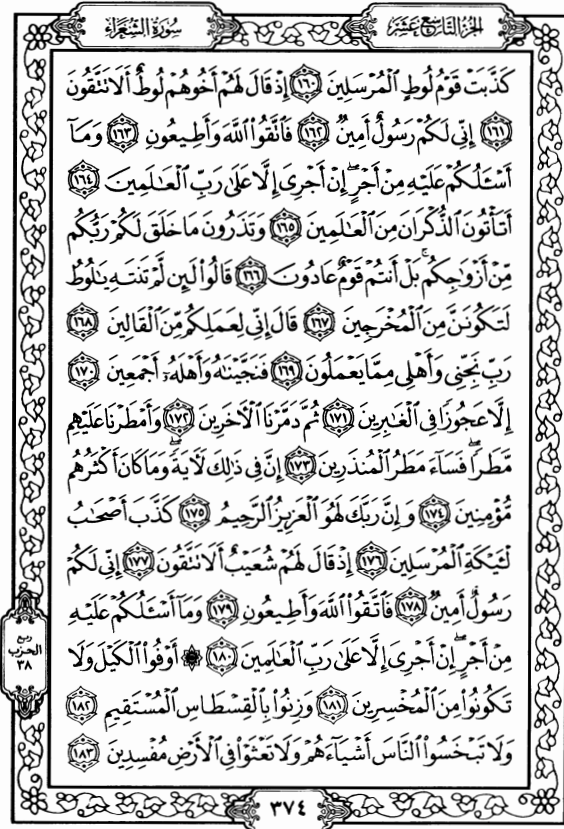 الجزء التاسع عشر
سورة الشعراء
كَذَّبَتْ قَوْمُ لُوطٍ ٱلْمُرْسَلِينَ ١٦٠ إِذْ قَالَ لَهُمْ أَخُوهُمْ لُوطٌ أَلَا تَتَّقُونَ
١٦١ إِنِّى لَكُمْ رَسُولٌ أَمِينٌ ١٦٢ فَٱتَّقُوا۟ ٱللَّهَ وَأَطِيعُونِ ١٦٣ وَمَآ
أَسْـَٔلُكُمْ عَلَيْهِ مِنْ أَجْرٍ ۖ إِنْ أَجْرِىَ إِلَّا عَلَىٰ رَبِّ ٱلْعَـٰلَمِينَ ١٦٤
أَتَأْتُونَ ٱلذُّكْرَانَ مِنَ ٱلْعَـٰلَمِينَ ١٦٥ وَتَذَرُونَ مَا خَلَقَ لَكُمْ رَبُّكُم
مِّنْ أَزْوَٰجِكُم ۚ بَلْ أَنتُمْ قَوْمٌ عَادُونَ ١٦٦ قَالُوا۟ لَئِن لَّمْ تَنتَهِ يَـٰلُوطُ
لَتَكُونَنَّ مِنَ ٱلْمُخْرَجِينَ ١٦٧ قَالَ إِنِّى لِعَمَلِكُم مِّنَ ٱلْقَالِينَ ١٦٨
رَبِّ نَجِّنِى وَأَهْلِى مِمَّا يَعْمَلُونَ ١٦٩ فَنَجَّيْنَـٰهُ وَأَهْلَهُۥٓ أَجْمَعِينَ ١٧٠
إِلَّا عَجُوزًا فِى ٱلْغَـٰبِرِينَ ١٧١ ثُمَّ دَمَّرْنَا ٱلْـَٔاخَرِينَ ١٧٢ وَأَمْطَرْنَا عَلَيْهِم
مَّطَرًا ۖ فَسَآءَ مَطَرُ ٱلْمُنذَرِينَ ١٧٣ إِنَّ فِى ذَٰلِكَ لَـَٔايَةً ۖ وَمَا كَانَ أَكْثَرُهُم
مُّؤْمِنِينَ ١٧٤ وَإِنَّ رَبَّكَ لَهُوَ ٱلْعَزِيزُ ٱلرَّحِيمُ ١٧٥ كَذَّبَ أَصْحَـٰبُ
لْـَٔيْكَةِ ٱلْمُرْسَلِينَ ١٧٦ إِذْ قَالَ لَهُمْ شُعَيْبٌ أَلَا تَتَّقُونَ ١٧٧ إِنِّى لَكُمْ
رَسُولٌ أَمِينٌ ١٧٨ فَٱتَّقُوا۟ ٱللَّهَ وَأَطِيعُونِ ١٧٩ وَمَآ أَسْـَٔلُكُمْ عَلَيْهِ
مِنْ أَجْرٍ ۖ إِنْ أَجْرِىَ إِلَّا عَلَىٰ رَبِّ ٱلْعَـٰلَمِينَ ١٨٠ ۞ أَوْفُوا۟ ٱلْكَيْلَ وَلَا
تَكُونُوا۟ مِنَ ٱلْمُخْسِرِينَ ١٨١ وَزِنُوا۟ بِٱلْقِسْطَاسِ ٱلْمُسْتَقِيمِ ١٨٢
وَلَا تَبْخَسُوا۟ ٱلنَّاسَ أَشْيَآءَهُمْ وَلَا تَعْثَوْا۟ فِى ٱلْأَرْضِ مُفْسِدِينَ ١٨٣
ربع
الحزب
٣٨
٣٧٤